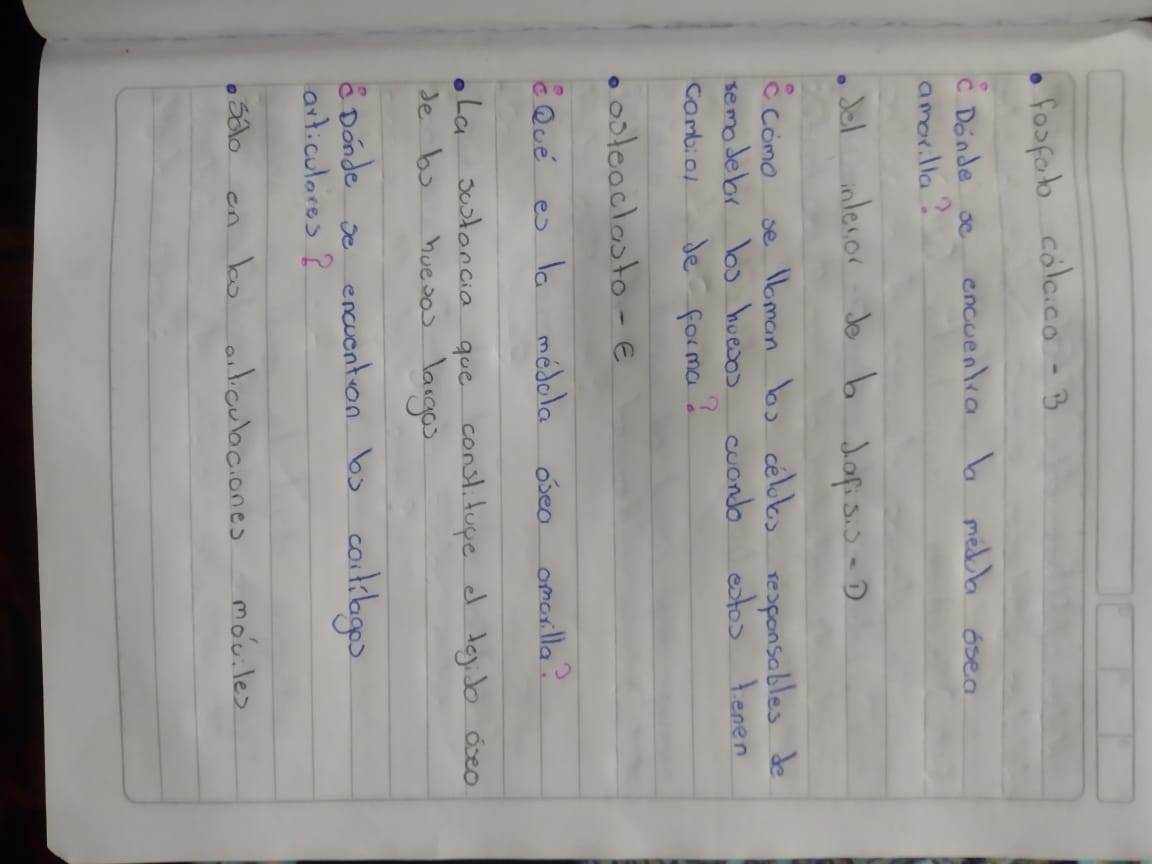 • fosfato cálcico - B
¿Dónde se encuentra la médula ósea
amarilla?
• del interior de la diafisis - D
¿Cómo se llaman las células responsables de
remodelar los huesos cuando estos tienen
cambiar de forma?
• osteoclasto - E
¿Qué es la médula ósea amarilla?
• La sustancia que constituye el tejido óseo
de los huesos largos
¿Dónde se encuentran los cartílagos
articulares?
• Sólo en las articulaciones móviles